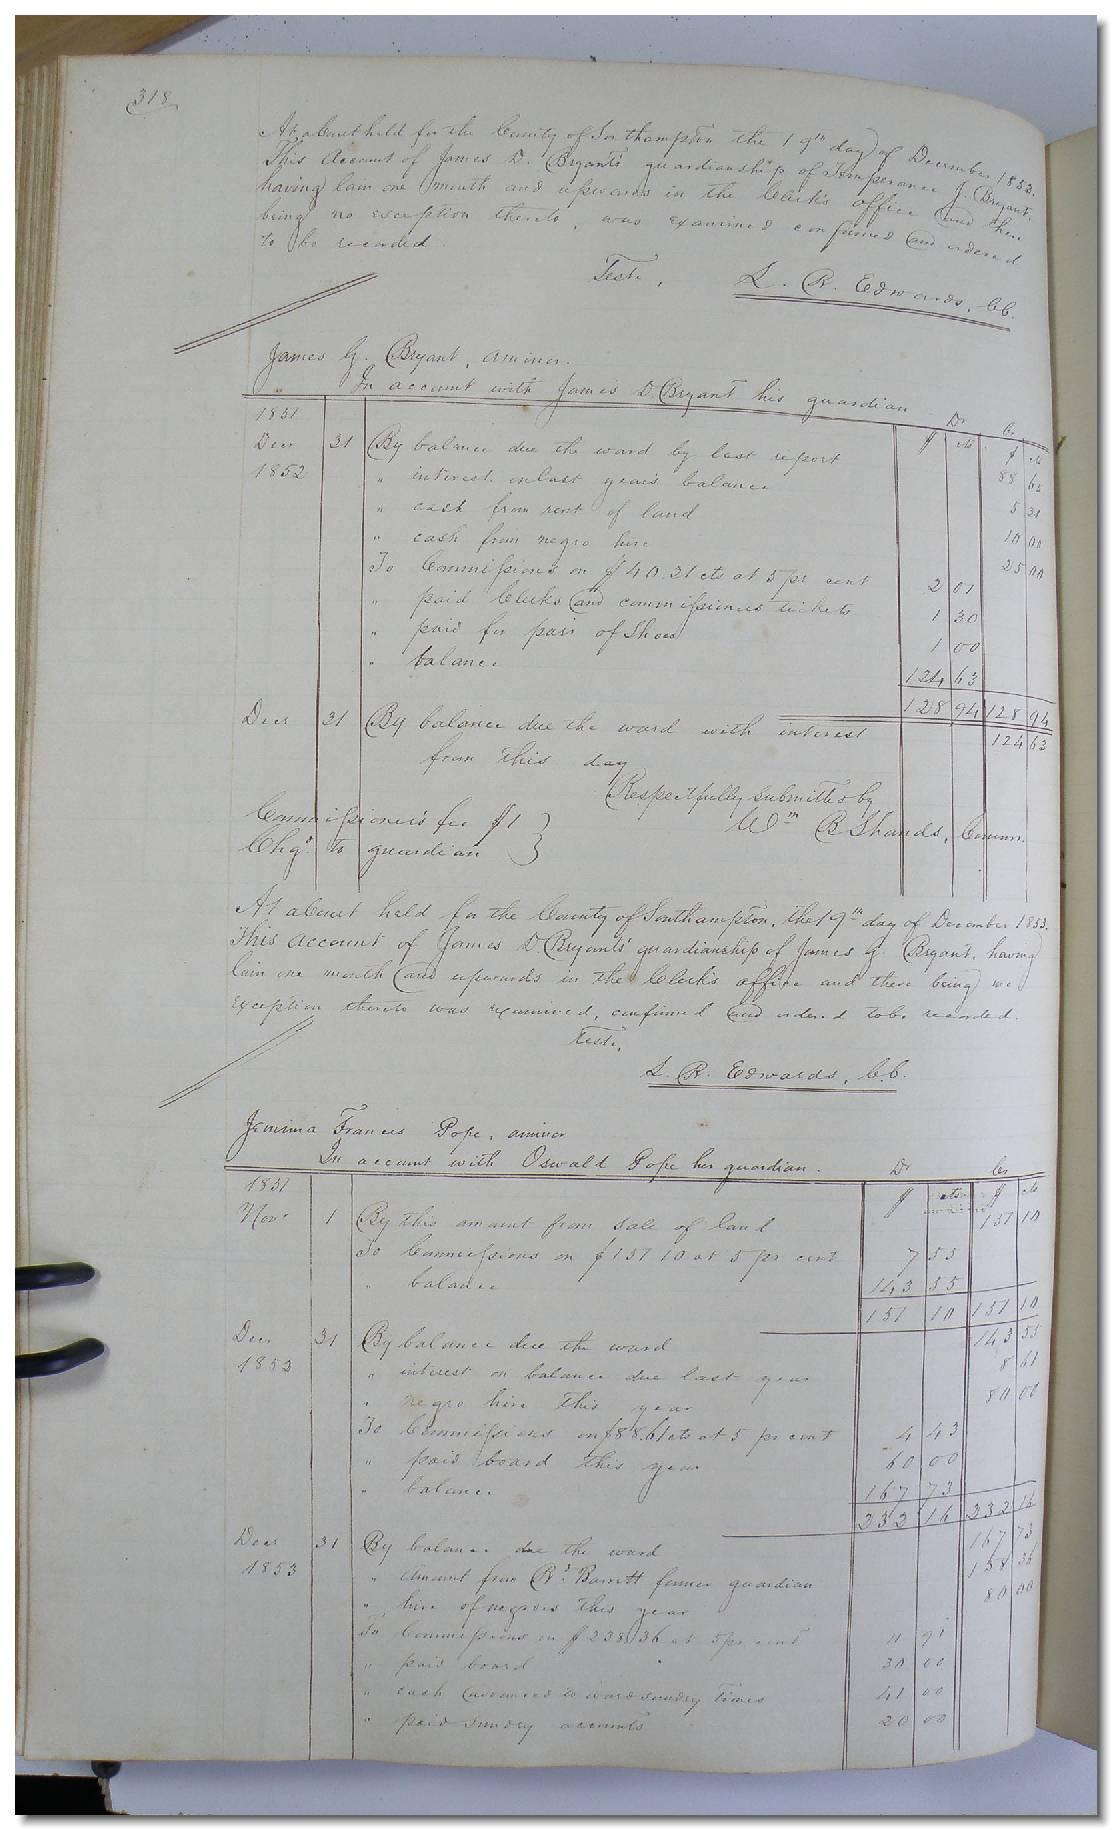 318
At a Court held for the County of Southampton the 19th day of December 1853.
This Account of James D. Bryant's guardianship of Temperance J. Bryant,
having lain one month and upwards in the Clerk's office and there
being no exception thereto, was examined confirmed and ordered
to be recorded
Teste, L. R. Edwards, CC.
James G. Bryant, a minor.
In account with James D. Bryant his guardian Dr Cr
1851 $ cts $ cts
Decr 31 By balance due the ward by last report 88 63
1852 " interest on last years balance 5 31
" cash from rent of land 10 00
" cash from negro hire 25 00
To Commissions on $40.31 cts at 5 pr cent 2 01
" paid Clerks and commissioners tickets 1 30
" paid for pair of Shoes 1 00
" balance 124 63
128 94 128 94
Decr 31 By balance due the ward with interest 124 63
from this day
Respectfully submitted by
Commissioner's fee $1 } Wm B Shands, Commr.
Chgd to guardian }
At a Court held for the County of Southampton, the 19th day of December 1853.
This account of James D. Bryants' guardianship of James G. Bryant, having
lain one month and upwards in the Clerk's office and there being no
exception thereto was examined, confirmed and ordered to be recorded.
Teste,
L. R. Edwards, C.C.
Jemima Frances Pope, a minor
In account with Oswald Pope her guardian. Dr Cr
1851 $ cts $ cts
Novr 1 By this amount from sale of land 151 10
To Commissions on $151 10 at 5 pr cent 7 55
" balance 143 55
151 10 151 10
Decr 31 By balance due the ward 143 55
1852 " interest on balance due last year 8 61
" negro hire this year 80 00
To Commissions on $88.61 cts at 5 pr cent 4 43
" paid board this year 60 00
" balance 167 73
232 16 232 16
Decr 31 By balance due the ward 167 73
1853 " amount from Rd. Barrett former guardian 158 36
" hire of negroes this year 80 00
To Commissions on $238.36 at 5 pr cent 11 91
" paid board 30 00
" cash advanced to ward sundry times 41 00
" paid sundry accounts 20 00